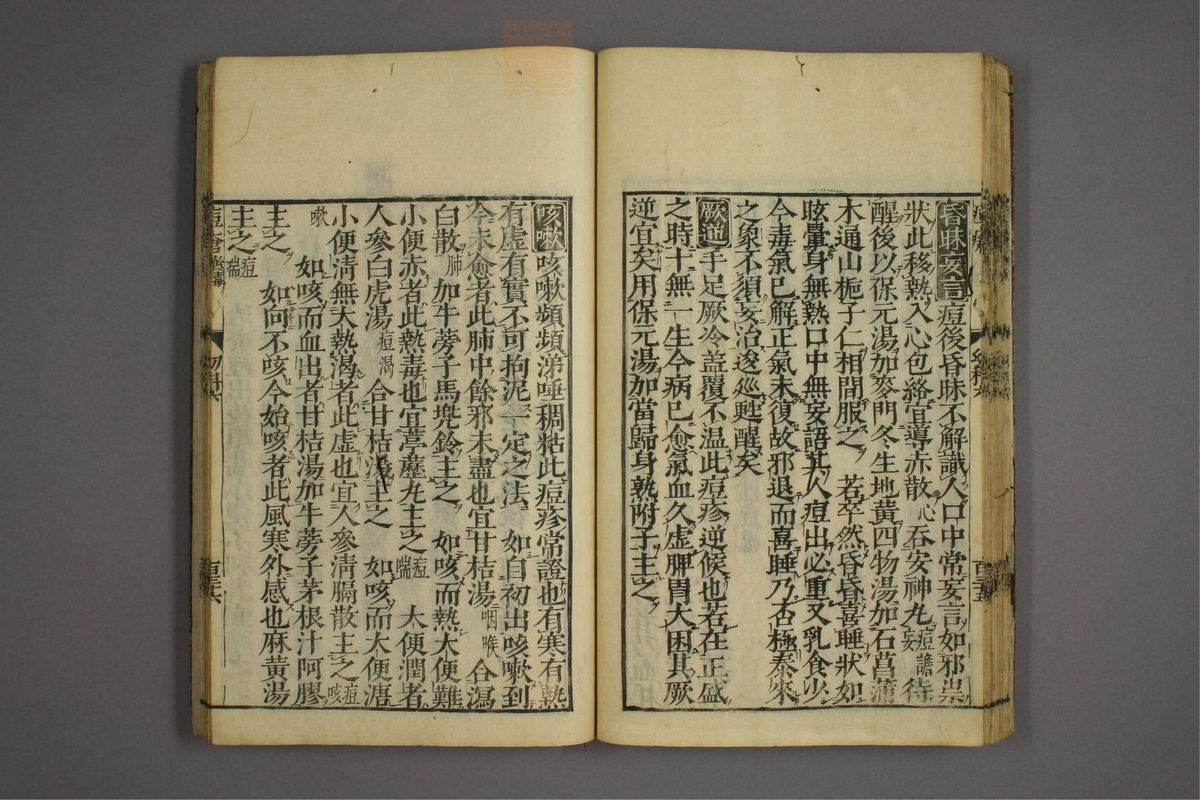 昏昧妄言痘後昏昧不解識人口中常妄言如邪祟
狀此移熱入心包絡宜導赤散心吞安神丸痘譫妄待
醒後以保元湯加麥門冬生地黃四物湯加石菖蒲
木通山梔子仁相間服之 若卒然昏昏喜睡狀如
眩暈身無熱口中無妄語其人痘出必重又乳食少
今毒氣已解正氣未復故邪退而喜睡乃否極泰來
之象不須妄治逡巡甦醒矣
厥逆手足厥冷蓋覆不温此痘疹逆候也若在正盛
之時十無一生今病已愈氣血久虛脾胃大困其厥
逆宜矣用保元湯加當歸身熟附子主之
百三十五
咳嗽咳嗽頻頻涕唾稠粘此痘疹常證也有寒有熱
有虛有實不可拘泥一定之法 如自初出咳嗽到
今未愈者此肺中餘邪未盡也宜甘桔湯咽喉合瀉
白散肺加牛蒡子馬兜鈴主之 如咳而熱大便難
小便赤者此熱毒也宜葶藶丸主之痘喘 大便潤者
人參白虎湯痘渴合甘桔湯主之 如咳而大便溏
小便清無大熱渴者此虛也宜人參清膈散主之痘咳
嗽 如咳而血出者甘桔湯加牛蒡子茅根汁阿膠
主之 如向不咳今始咳者此風寒外感也麻黃湯
主之痘喘
幼科六
百三十六